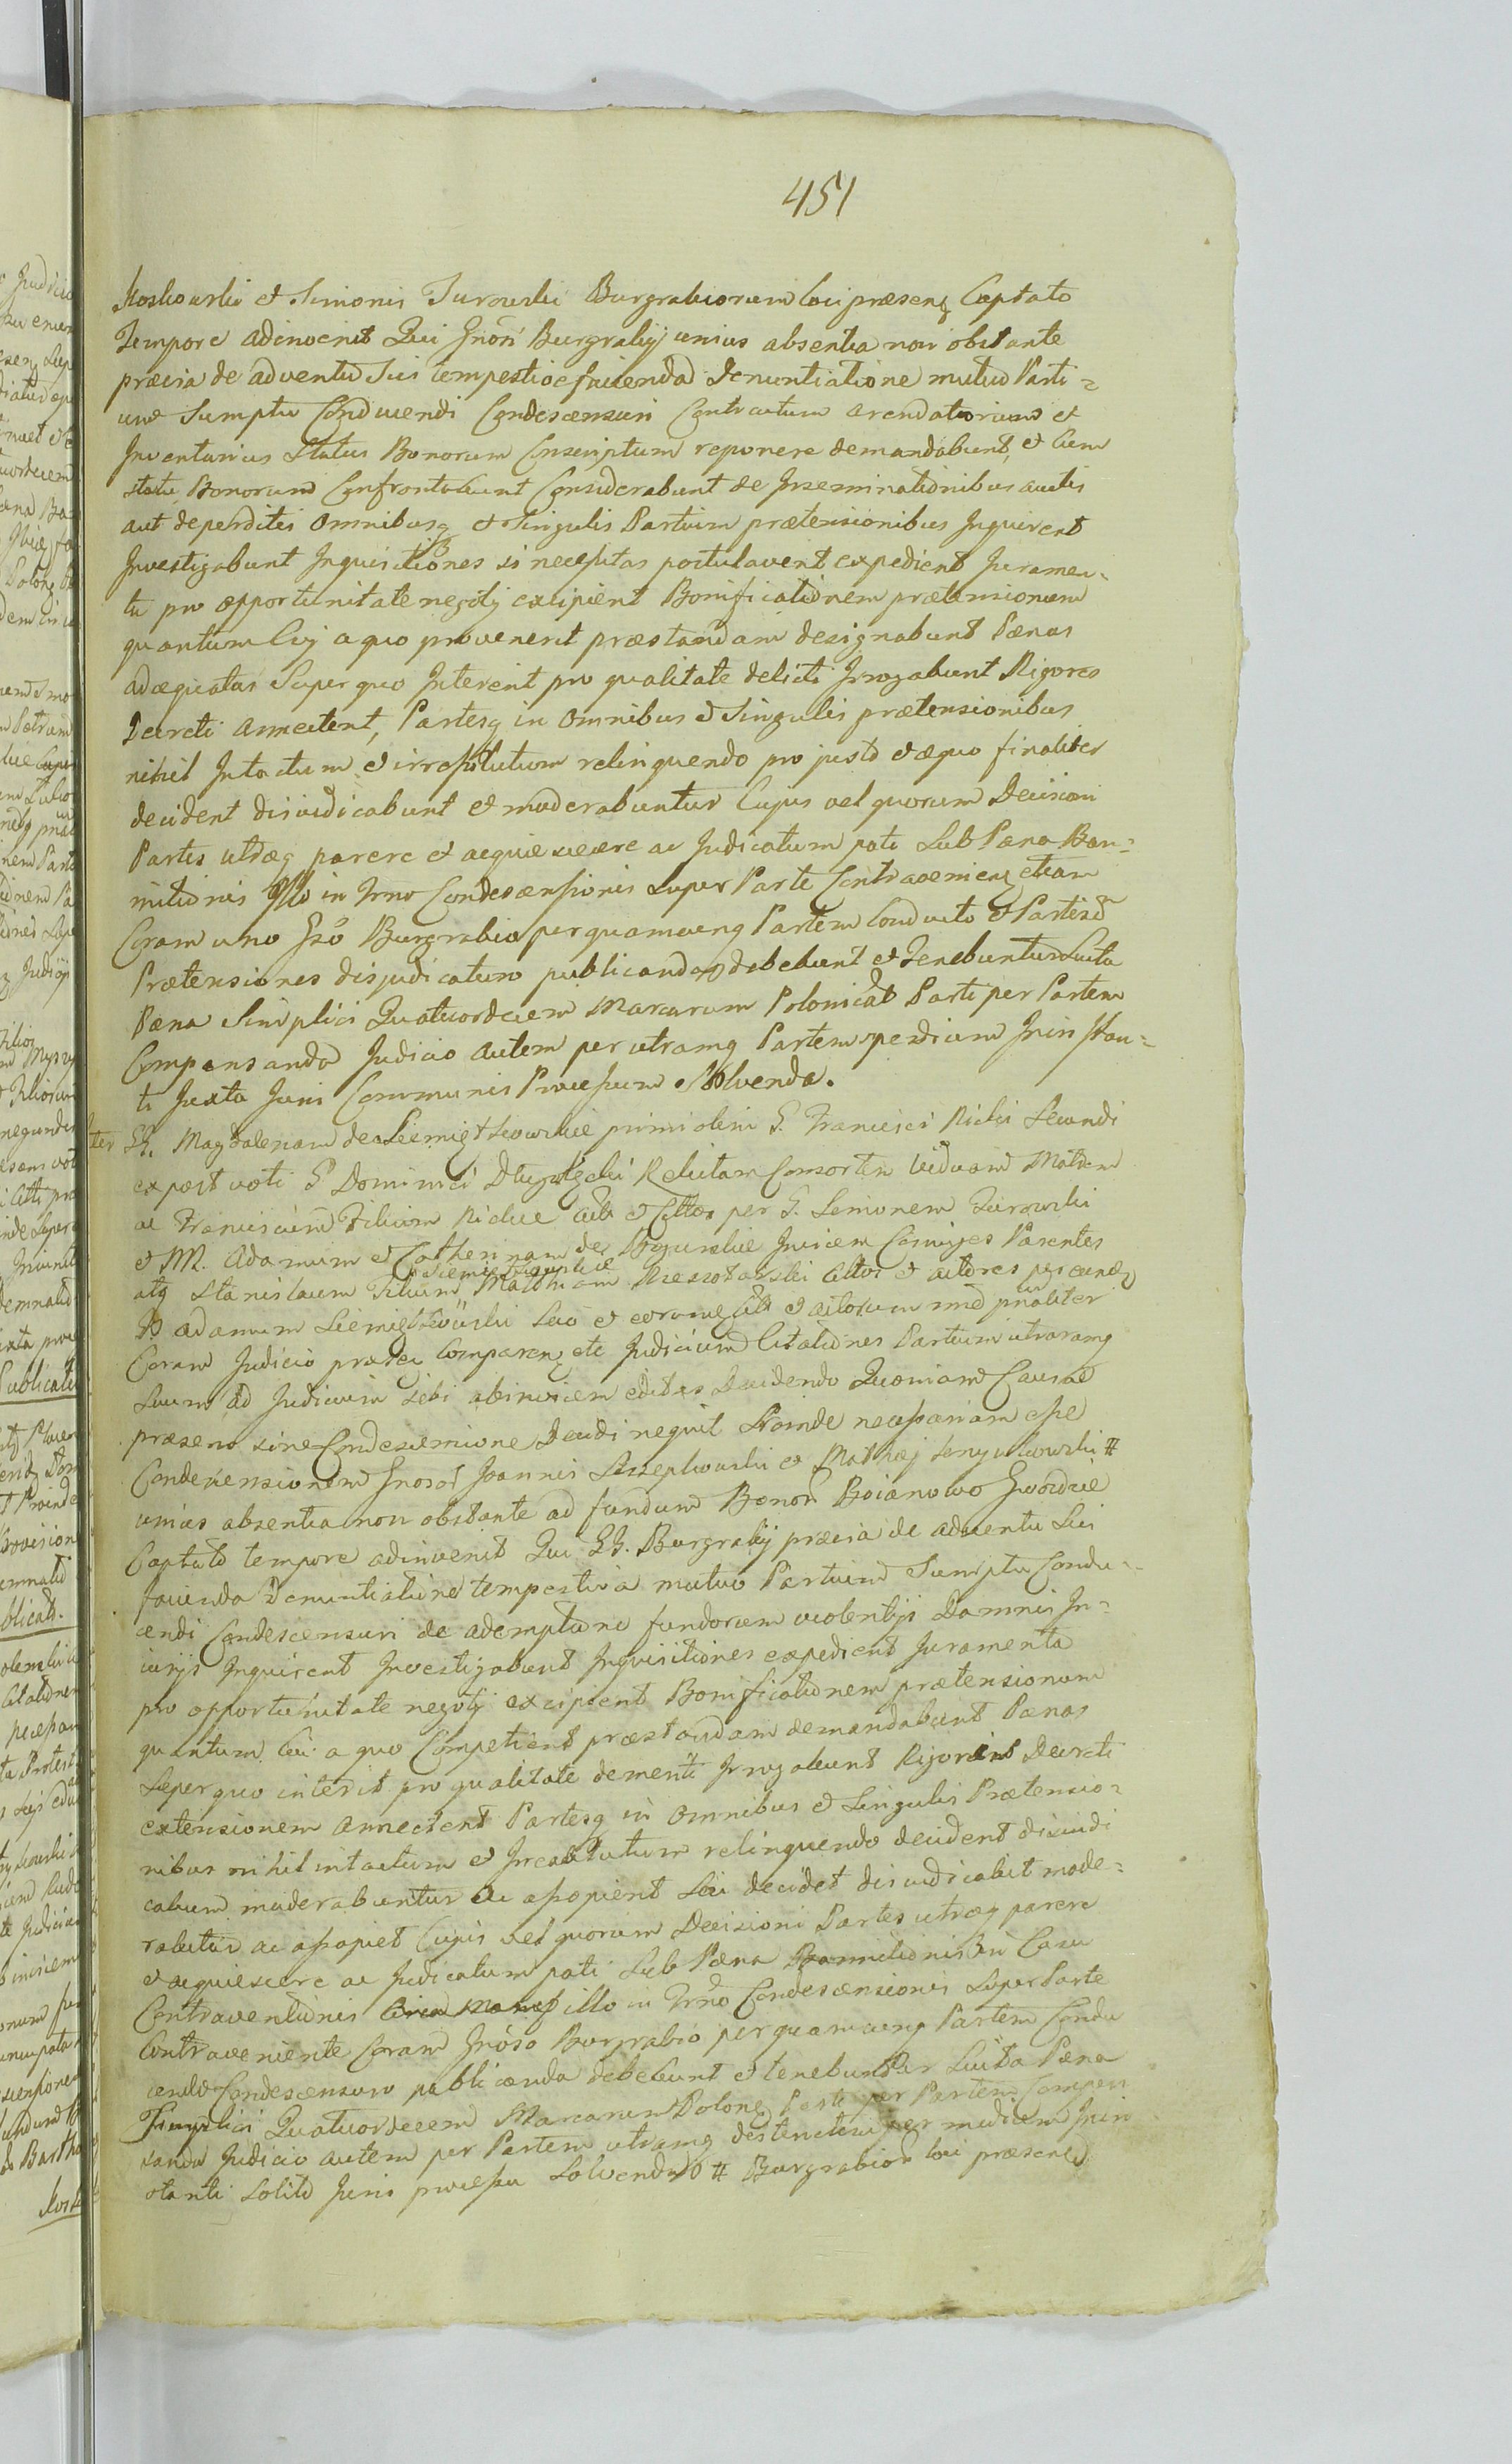 451
Koskowski et Simonis Turowski Burgrabiorum loci præsenq Captato
Tempore adinvenit Qui Gnosi Burgrabij unius absentia non obstante
prævia de adventu Sui tempestive facienda Denuntiatione mutuo Parti-
um Sumptu Conducendi Condescensuri Contractum arendatorium et
Inventarius Status Bonorum Conscriptum reponere demandabunt, et Cum
statu Bonorum Confrontabunt Considerabunt de Inseminationibus auctis
aut deperditis omnibusq et Singulis Partium prætensionibus Inquirent
Investigabunt Inquisitiones si necessitas postulaverit expedient Juramen-
ta pro opportunitate negotij excipient Bonificationem prætensionum
quantum Cuj a quo provenerit præstandam designabunt Pænas
adæquatas Super quo Intererit pro qualitate delicti Irrogabunt Rigores
Decreti annectent, Partesq in omnibus et Singulis prætensionibus
nihil Intactum et irresolutum relinquendo pro justo et æquo finaliter
decident dijudicabunt et moderabuntur Cujus vel quorum Decisioni
Partes utræq parere et acquiescere ac Judicatum pati Sub Pæna Ban-
nitionis Illo in Trno Condescensionis Super Parte Contravenienq etiam
Coram uno Gso Burgrabio per quamcunq Partem Conducto et Partis
Prætensiones disjudicaturo publicanda debebunt et Tenebuntur Luita
Pæna Simplici Quatuordecim Marcarum Polonical Parti per Partem
Compensanda Judicio autem per utramq Partem medium Inin stan-
ti Juxta Juris Communis Processum Solvenda.
ter GG. Magdalenam de Siemiątkowskie primi olim G. Francisci Nicki Secundi
ex post voti G Dominici Długołęcki Relictam Consortem Viduam Matrem
ac Franciscum Filium Nickie Act et Cittos per G. Simonem Turowski
et M. Adamum et Catherinam de Bogurskie Invicem Coniuges Parentes
atq Stanislaum Filium Mathiam Rzeszotarski Cittos et actores per eund
G adamum Siemiątkowski Suo et eorumq Citt et actorum nne pnaliter
Coram Judicio præsen Comparenq etc Judicium Citationes Partium utrarumq
Suum ad Judicium Sibi abinvicem editas Decidendo Quoniam Causa
præsens sine Condescensione Decidi nequit Proinde necessariam esse
Condescensionem Gnosor Joannis Strzeszkowski et Mathæj #
unius absentia non obstante ad fundum Bonor Boianowo Gwozdzie
Captato tempore adinvenit Qui GG. Burgrabij prævia de adventu Sui
facienda Denuntiatione tempestiva mutuo Partium Sumptu Condu-
cendi Condescensuri de ademptione fundorum violentijs Damnis In-
iurijs Inquirent Investigabunt Inquisitiones expedient Juramenta
pro opportunitate negotij excipient Bonificationem prætensionum
quantum Cui a quo Competient præstandam demandabunt Pænas
Super quo intererit pro qualitate demeriti Irrogabunt Rigorem Decreti
extensionem annectent Partesq in omnibus et Singulis Prætensio-
nibus nihil intactum et Irresolutum relinquendo decident dijudi
cabunt moderabuntur ac assopient Seu decidet disiudicabit mode-
rabitur ac assopiet Cujus vel quorum Decisioni Partes utræq parere
et acquiescere ac Judicatum pati Sub Pæna Bannitionis in Casu
Contraventionis illo in Trno Condescensionis Super Parte
Contraveniente Coram Gnoso Burgrabio per quamcunq Partem Condu
cendo Condescensuro publicanda debebunt et tenebuntur Luita Pæna
Simplici Quatuordecem Marcarum Polonq Parti per Partem Compen
sanda Judicio autem per Partem utramq per medium Inin
stanti Solito Juris processu Solvenda # Burgrabior loci præsened